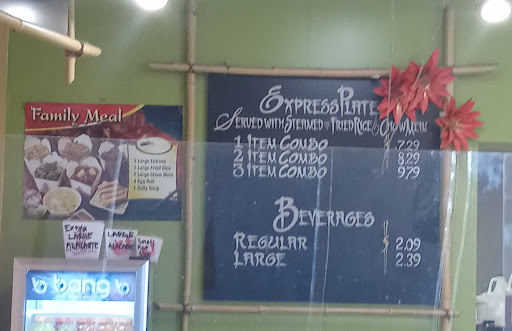 Family Meal
3 Large Entrees
1 Large Fried Rice
1 Large Chow Mein
4 Egg Roll
1 Daily Soup
EXTRA
LARGE
ALACARTE
LARGE
ALACARTE
Small
bang
EXPRESS PLATE
SERVED WITH STEAMED or FRIED RICE & CHOW MEIN
1 ITEM COMBO $ 7.29
2 ITEM COMBO 8.29
3 ITEM COMBO 9.79
BEVERAGES
REGULAR $ 2.09
LARGE 2.39